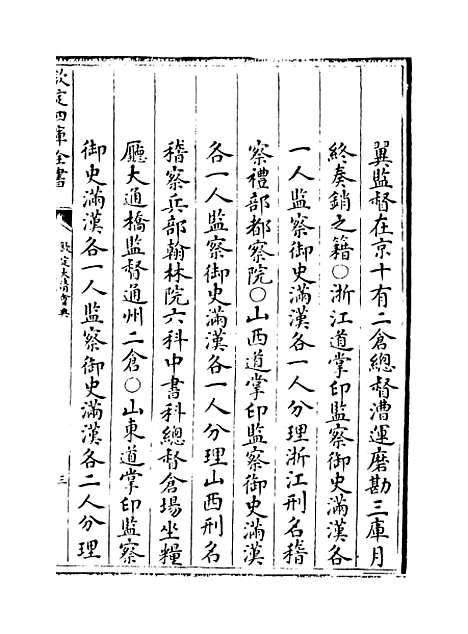 翼監督在京十有二倉總督漕運磨勘三庫月
終奏銷之籍〇浙江道掌印監察御史滿漢各
一人監察御史滿漢各一人分理浙江刑名稽
察禮部都察院〇山西道掌印監察御史滿漢
各一人監察御史滿漢各一人分理山西刑名
稽察兵部翰林院六科中書科總督倉場坐糧
廳大通橋監督通州二倉〇山東道掌印監察
御史滿漢各一人監察御史滿漢各二人分理
欽定四庫全書
欽定大清會典
三